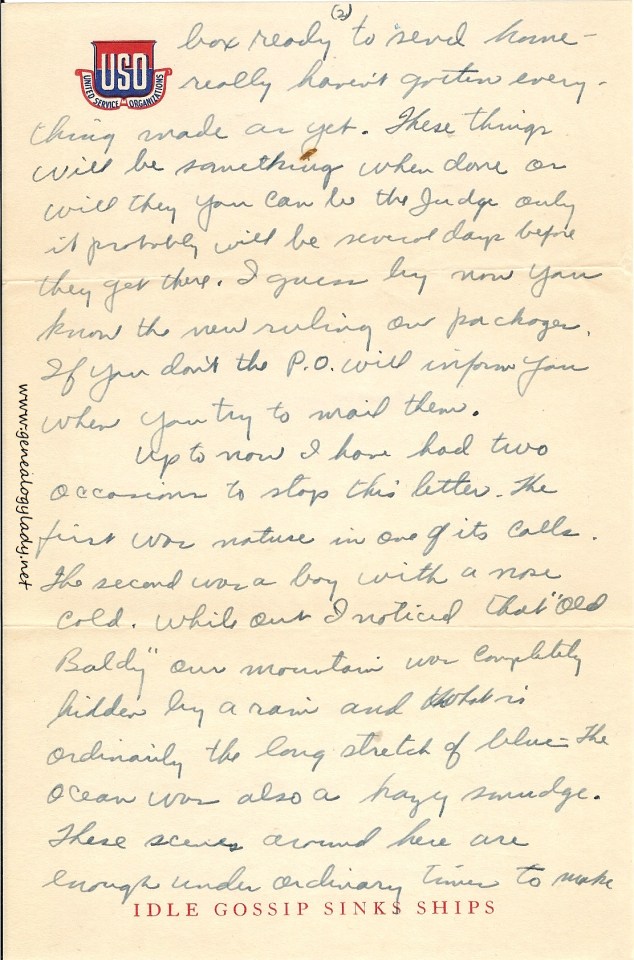 (2)
box ready to send home -
USO
UNITED SERVICE ORGANIZATIONS
really haven't gotten every-
thing made as yet. These things
will be something when done or
will they you can be the Judge only
it probably will be several days before
they get there. I guess by now you
know the new ruling on packages.
If you don't the P.O. will inform you
when you try to mail them.
Up to now I have had two
occasions to stop this letter. The
first was nature in one of its calls.
The second was a boy with a nose
cold. While out I noticed that "Old
Baldy" our mountain was completely
hidden by a rain and what is
ordinarily the long stretch of blue - the
ocean was also a hazy smudge.
These scenes around here are
enough under ordinary times to make
IDLE GOSSIP SINKS SHIPS
www.genealogylady.net